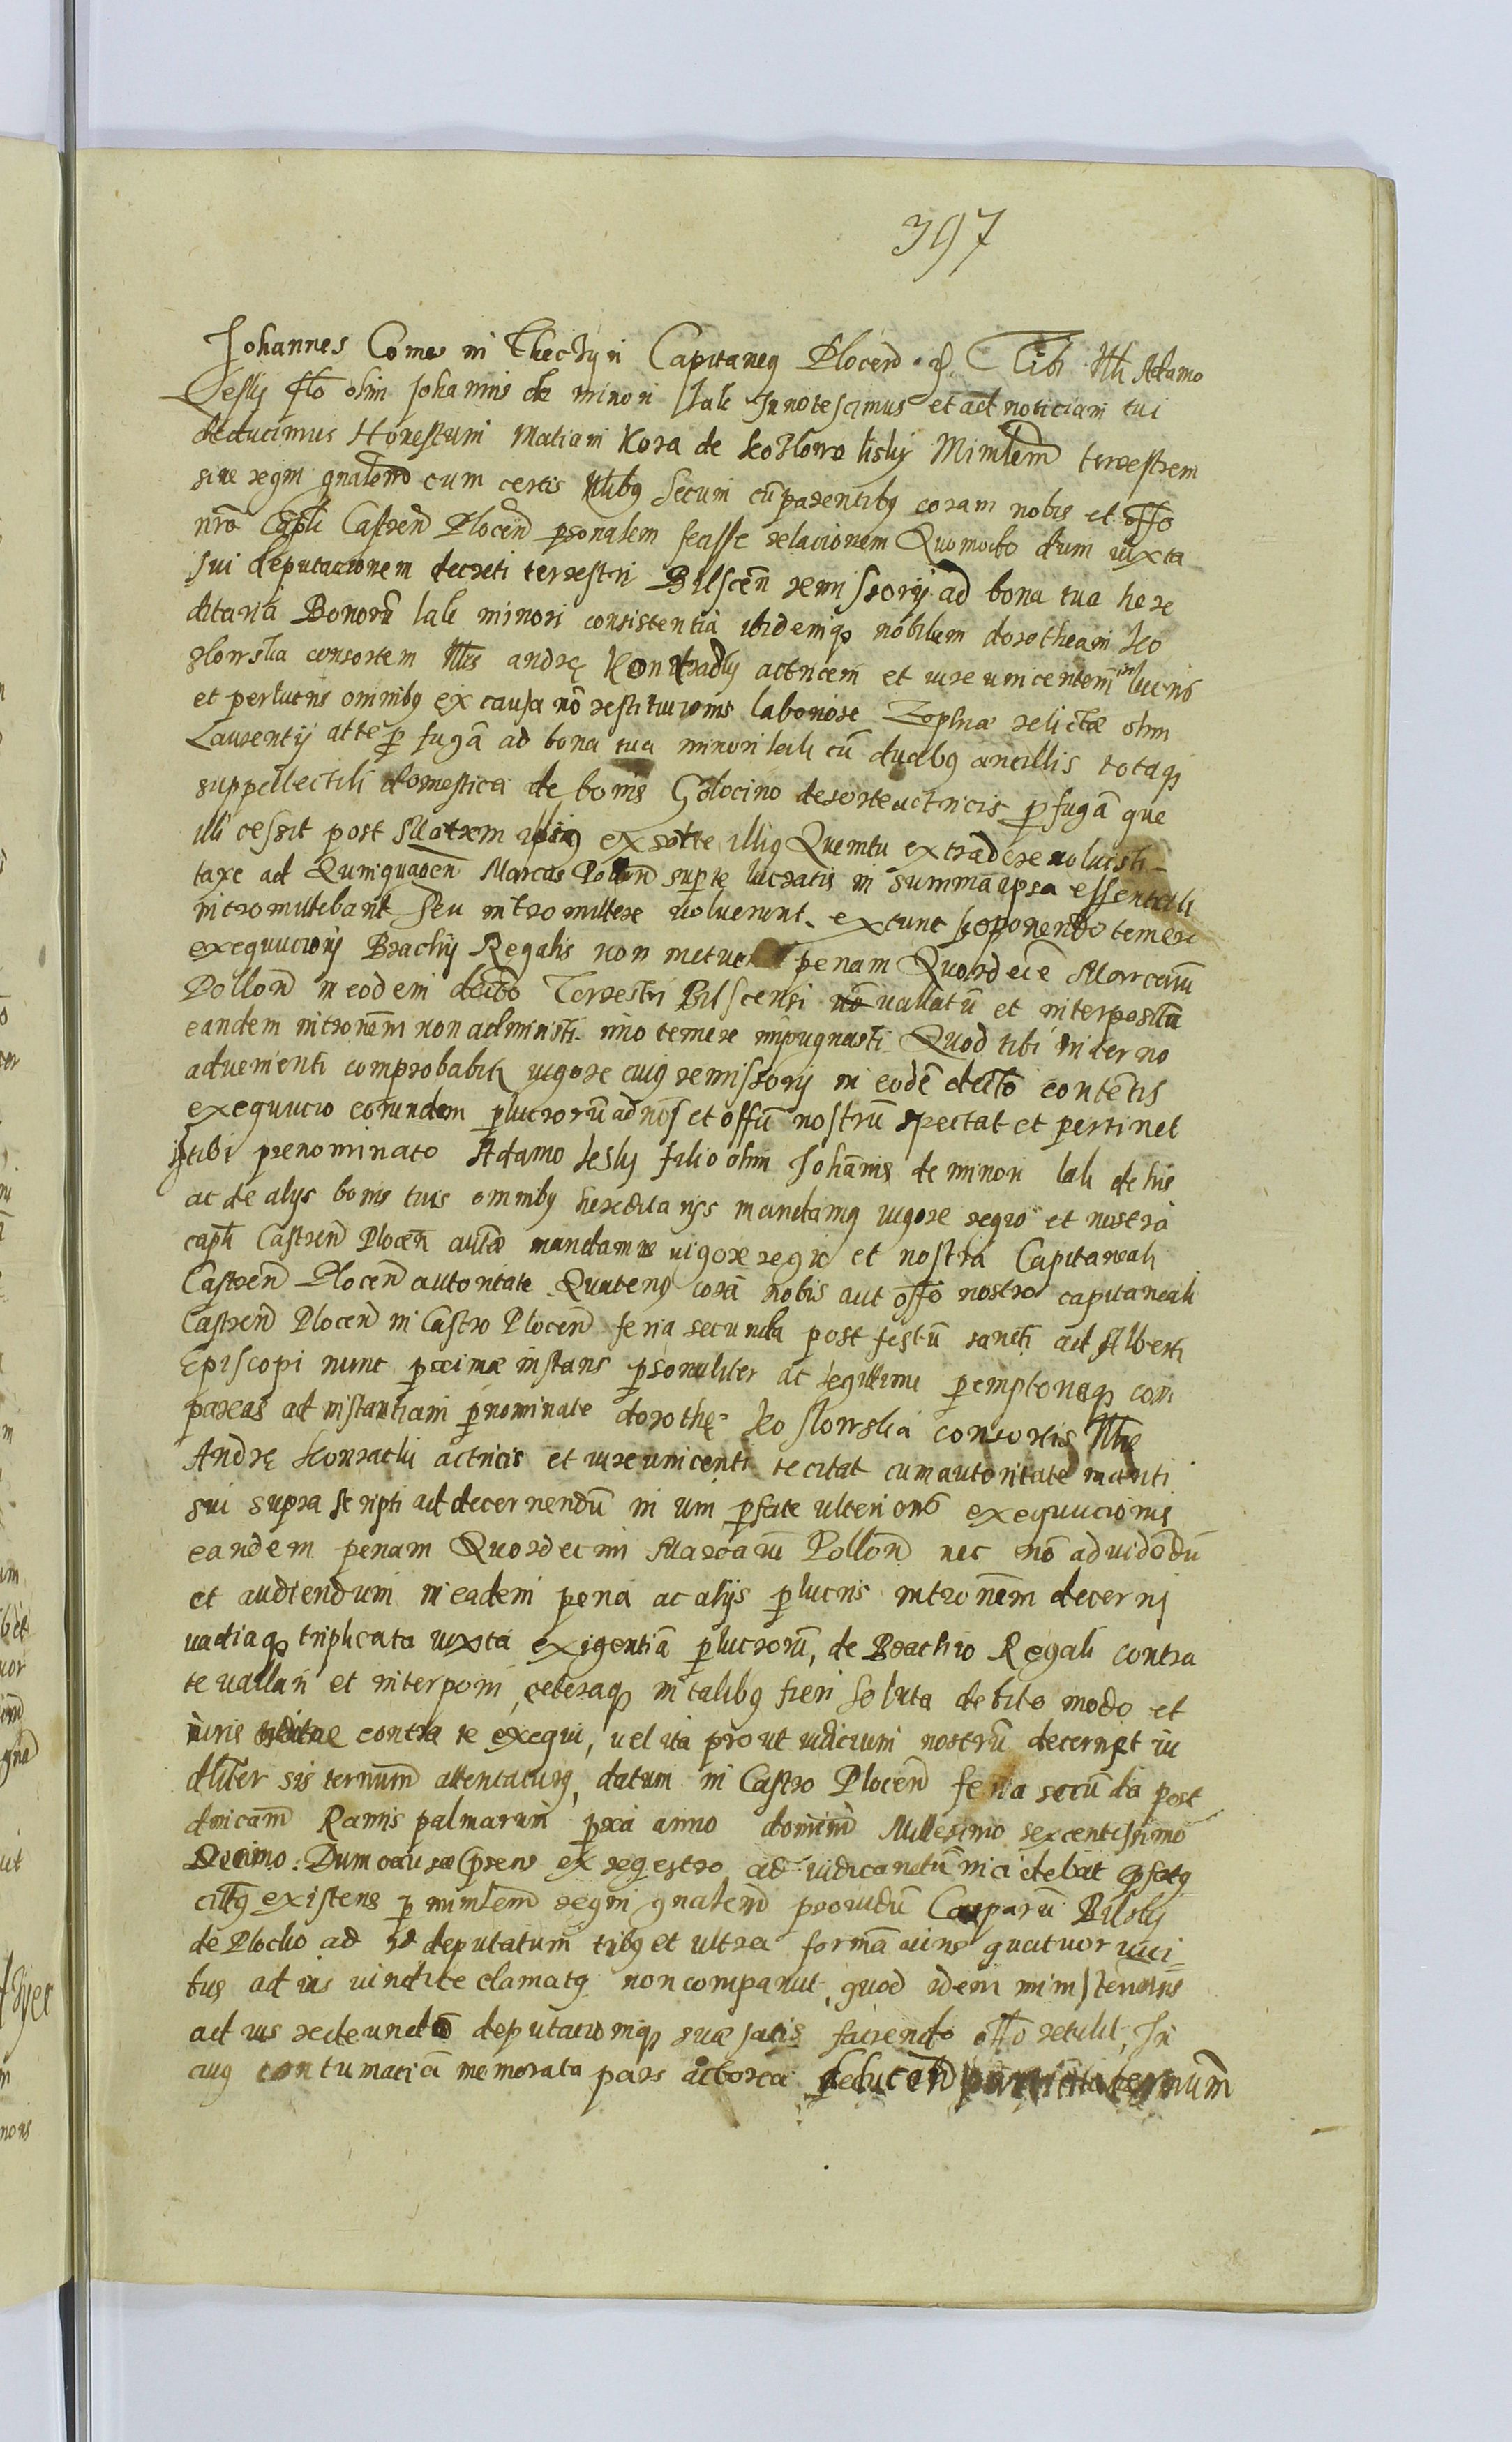 397
Johannes Comes in Thecżyn Capitaneq Plocen̄ . Tibi Nli Adamo
Lesky flō olim Johannis de minori Lali Innotescimus et ad noticiam tui
deducimus Honestum Matiam Kora de Kozłowo lisky Minīlem̄ terrestrem
siue regni gnałem̄ cum certis Nlibq secum cū parentibq coram nobis et offo
nrō Capli Castren̄ Plocen̄ psonalem fecisse relacionem Quomodo dum iuxta
sui deputacionem decreti terrestri Bilscen̄ remissorij ad bona tua here
ditaria Bonorū lali minori consistentia ibidemq nobilem dorotheam Ko
złowska consortem Nlis andrę Kondradly actricem et iure uincentem in lucris
et perlucris omnibq ex causa nō restitucionis laboriose Zophiæ relictæ olim
Laurentij atte p fugā ad bona tua minori lali cū duabq ancillis totaq
suppellectili domestica de bonis Golocino de sorte actricis p fugā que
illi cessit post Matrem illiq ex sorte illiq Quemtu extradere noluisti
taxe ad Quinquagen̄ Marcas Pollon̄ super te lucratis in summa ipsa essentiali
intromittebant seu intromittere uoluerunt, extunc seponendo temere
exequucionj Brachij Regalis non metuen penam Quordecē Marcarū
Pollon̄ in eodem dectō Terrestri Bilscensi uallatū et interpositū
eandem intronēm non admisisti imo temere impugnasti Quod tibi in terno
aduenienti comprobabit uigore cuiq remissorij in eodē dectō contentis
exequucio eorundem plucrorū ad nos et offū nostrū spectat et pertinet
tibi prenominato Adamo Lesky filio olim Johānis de minori lali de his
ac de alys bonis tuis omnibq hereditarijs mandamq uigore regio et nostra
capli Castren̄ Plocen̄ autē mandamus uigore regio et nostra Capitaneali
Castren̄ Plocen̄ autoritate Quatenq corā nobis aut offo nostro capitaneali
Castren̄ Plocen̄ in Castro Plocen̄ feria secunda post festū sancti ad Alberti
Episcopi nunc pximæ instans psonaliter ac legittime pemptorieq com
pareas ad instantiam pnominate dorothę Kozłowska consortis Nlis
Andrę Konradli actricis et iure uincenti te citat cum autoritate mariti
sui supra scripti ad decernendū in uim pfate ulterioris exequucionis
eandem penam Quordecim Marcarū Pollon̄ nec nō aduidēdū
et audiendum in eadem pena ac alijs plucris intronēm decerni
uadiaq triplicata iuxta exigentiā plucrorū, de Brachio Regali contra
te uallari et interponi, ceteraq in talibq fieri soluta debito modo et
iuris ordine contra te exequi, uel ita prout iudicium nostrū decernet iu
dliter sis ternum̄ attentaturq, datum in Castro Plocen̄ feria secūda post
dnicam̄ Ramis palmarum pxa anno domini Millesimo sexcentissimo
Decimo. Dum causa prsens ex regestro ad iudicandū incidebat pfatq
citatq existens p minīlem̄ regni gnałem̄ prouidū Casparū Bilsky
de Plocko ad id deputatum tribq et ultra formā iuris quatuor uici
bus ad ius uindite clamatq non comparuit, quod idem ministerialis
ad ius redeundō deputacioniq suæ satis faciendo offō retulit, In
cuiq contumaciā memorata pars actorea